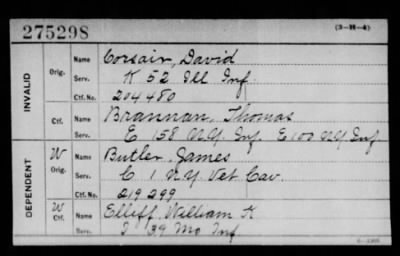 275298 (3-H-4)
INVALID
Orig. Name Corsair, David
Serv. K 52 Ill Inf.
Ctf. No. 204480
Ctf. Name Brannan, Thomas
Serv. E 158 N.Y. Inf. E 100 N Y Inf
DEPENDENT
W Orig. Name Butler, James
Serv. C 1 N.Y. Vet Cav.
Ctf. No. 219299
W Ctf. Name Elliff, William K
Serv. I 39 Mo Inf